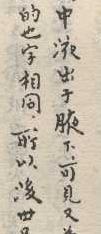 中液出于腋下，可見又
的也字相同，所以後世